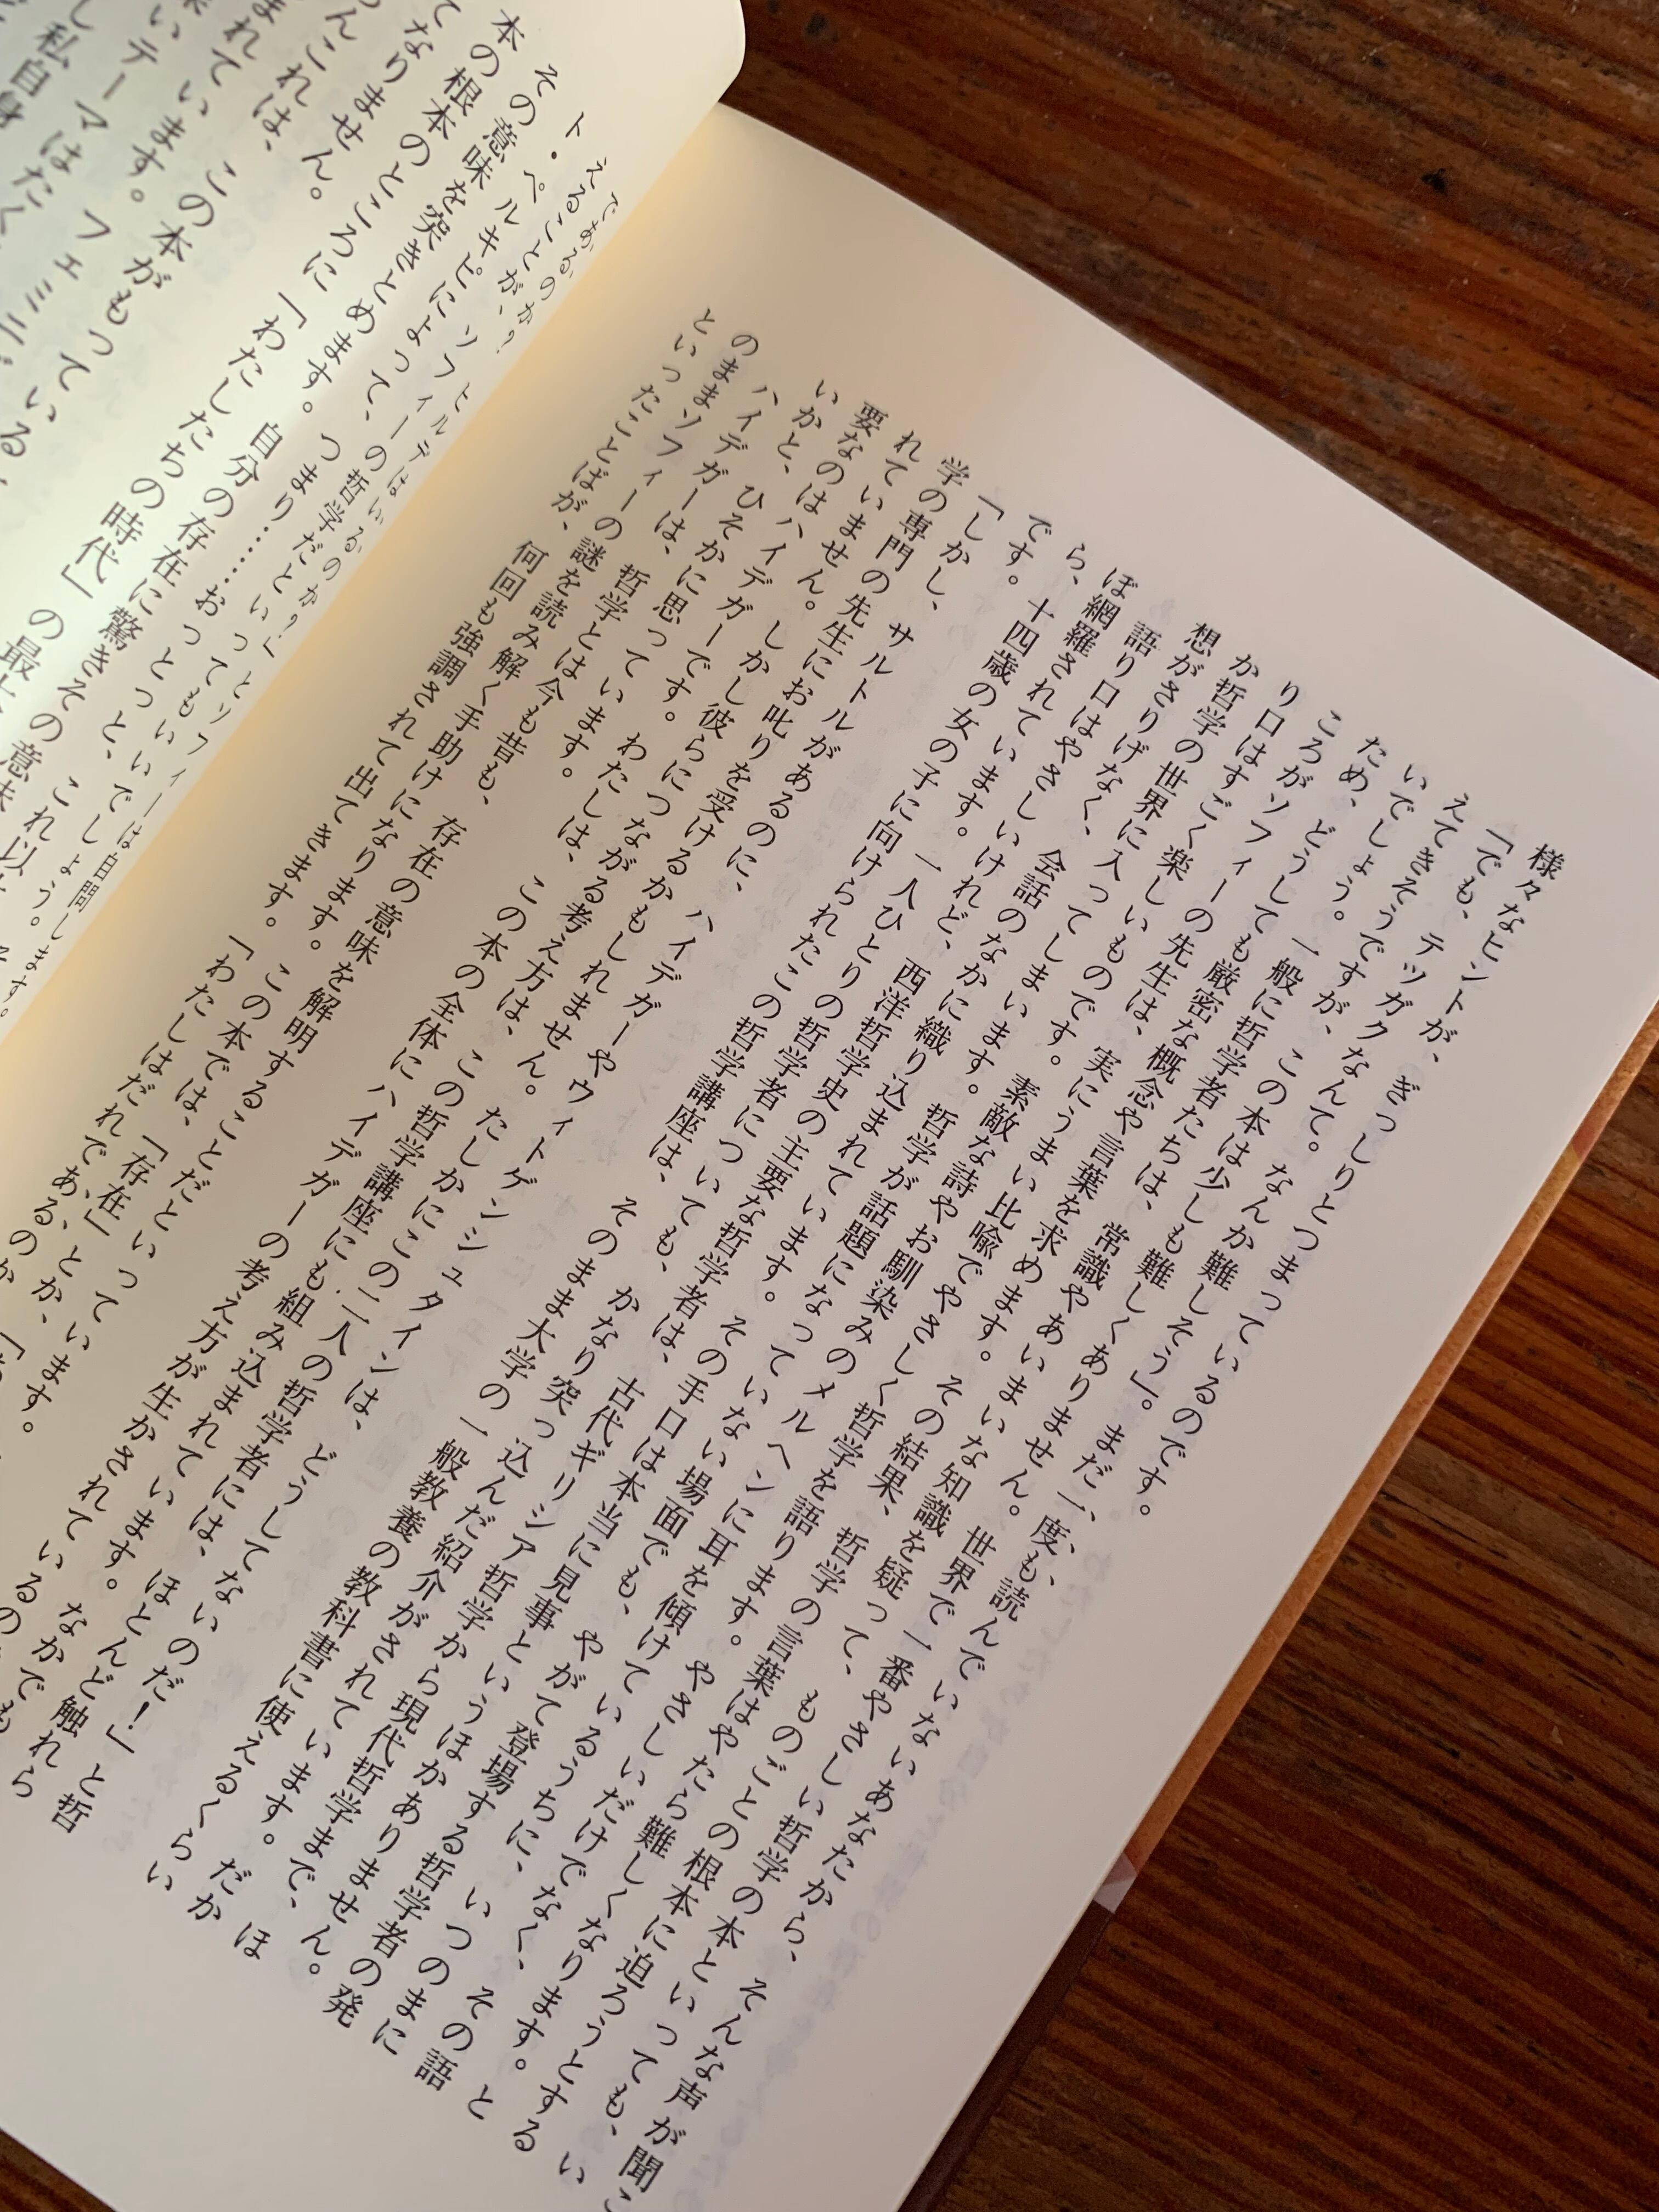 様々なヒントが、ぎっしりとつまっているのです。
「でも、テツガクなんて。なんか難しそう」。まだ一度も、読んでいないあなたから、そんな声が聞こ
えてきそうですが、この本は少しも難しくありません。世界で一番やさしい哲学の本といっても、い
いでしょう。一般に哲学者たちは、常識やあいまいな知識を疑って、ものごとの根本に迫ろうとする
ため、どうしても厳密な概念や言葉を求めます。その結果、哲学の言葉はやたら難しくなります。と
ころがソフィーの先生は、実にうまい比喩でやさしく哲学を語ります。やさしいだけでなく、その語
り口はすごく楽しいものです。素敵な詩やお馴染みのメルヘンに耳を傾けているうちに、いつのまに
か哲学の世界に入ってしまいます。哲学が話題になっていない場面でも、やがて登場する哲学者の発
想がさりげなく、会話のなかに織り込まれています。その手口は本当に見事というほかありません。
語り口はやさしいけれど、西洋哲学史の主要な哲学者は、古代ギリシア哲学から現代哲学まで、ほ
ぼ網羅されています。一人ひとりの哲学者についても、かなり突っ込んだ紹介がされています。だか
ら、十四歳の女の子に向けられたこの哲学講座は、そのまま大学の一般教養の教科書に使えるくらい
です。
「しかし、サルトルがあるのに、ハイデガーやウィトゲンシュタインは、どうしてないのだ！」と哲
学の専門の先生にお叱りを受けるかもしれません。たしかにこの二人の哲学者には、ほとんど触れら
れていません。しかし彼らにつながる考え方は、この哲学講座にも組み込まれています。なかでも
要なのはハイデガーです。わたしは、この本の全体にハイデガーの考え方が生かされているの
いかと、ひそかに思っています。
ハイデガーは、哲学とは今も昔も、存在の意味を解明することだといっています。
のままソフィーの謎を読み解く手助けになります。この本では、「存在」とか、
といったことばが、何回も強調されて出てきます。「わたしはだれであるのか、
であるのか？ ヒルデはいるのか？」とソフィーは自問します。そ
えることが、ソフィーの哲学だといってもいいでしょう。
ト・ペルキピによって、つまり……おっとっと、これ以
その意味を突きとめます。自分の存在に驚きその意味
本の根本のところに「わたしたちの時代」の最
てなりません。
んこれは、この本がもっている、
まれています。
いテーマはフェミニズ
し私自身